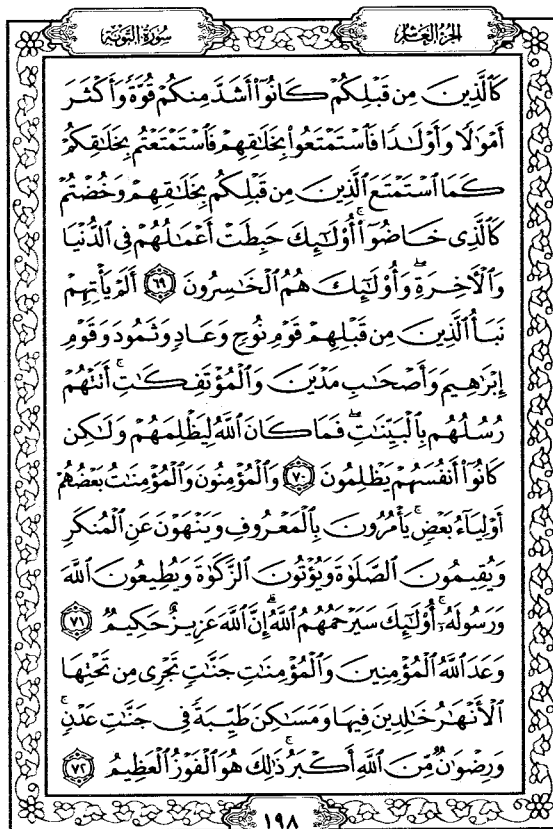 سُورَةُ التَّوْبَةِ
الجُزْءُ العَاشِرُ
كَٱلَّذِينَ مِن قَبْلِكُمْ كَانُوٓا۟ أَشَدَّ مِنكُمْ قُوَّةً وَأَكْثَرَ
أَمْوَٰلًا وَأَوْلَـٰدًا فَٱسْتَمْتَعُوا۟ بِخَلَـٰقِهِمْ فَٱسْتَمْتَعْتُم بِخَلَـٰقِكُمْ
كَمَا ٱسْتَمْتَعَ ٱلَّذِينَ مِن قَبْلِكُم بِخَلَـٰقِهِمْ وَخُضْتُمْ
كَٱلَّذِى خَاضُوٓا۟ ۚ أُو۟لَـٰٓئِكَ حَبِطَتْ أَعْمَـٰلُهُمْ فِى ٱلدُّنْيَا
وَٱلْـَٔاخِرَةِ ۖ وَأُو۟لَـٰٓئِكَ هُمُ ٱلْخَـٰسِرُونَ ٦٩ أَلَمْ يَأْتِهِمْ
نَبَأُ ٱلَّذِينَ مِن قَبْلِهِمْ قَوْمِ نُوحٍ وَعَادٍ وَثَمُودَ وَقَوْمِ
إِبْرَٰهِيمَ وَأَصْحَـٰبِ مَدْيَنَ وَٱلْمُؤْتَفِكَـٰتِ ۚ أَتَتْهُمْ
رُسُلُهُم بِٱلْبَيِّنَـٰتِ ۖ فَمَا كَانَ ٱللَّهُ لِيَظْلِمَهُمْ وَلَـٰكِن
كَانُوٓا۟ أَنفُسَهُمْ يَظْلِمُونَ ٧٠ وَٱلْمُؤْمِنُونَ وَٱلْمُؤْمِنَـٰتُ بَعْضُهُمْ
أَوْلِيَآءُ بَعْضٍ ۚ يَأْمُرُونَ بِٱلْمَعْرُوفِ وَيَنْهَوْنَ عَنِ ٱلْمُنكَرِ
وَيُقِيمُونَ ٱلصَّلَوٰةَ وَيُؤْتُونَ ٱلزَّكَوٰةَ وَيُطِيعُونَ ٱللَّهَ
وَرَسُولَهُۥٓ ۚ أُو۟لَـٰٓئِكَ سَيَرْحَمُهُمُ ٱللَّهُ ۗ إِنَّ ٱللَّهَ عَزِيزٌ حَكِيمٌ ٧١
وَعَدَ ٱللَّهُ ٱلْمُؤْمِنِينَ وَٱلْمُؤْمِنَـٰتِ جَنَّـٰتٍ تَجْرِى مِن تَحْتِهَا
ٱلْأَنْهَـٰرُ خَـٰلِدِينَ فِيهَا وَمَسَـٰكِنَ طَيِّبَةً فِى جَنَّـٰتِ عَدْنٍ ۚ
وَرِضْوَٰنٌ مِّنَ ٱللَّهِ أَكْبَرُ ۚ ذَٰلِكَ هُوَ ٱلْفَوْزُ ٱلْعَظِيمُ ٧٢
١٩٨